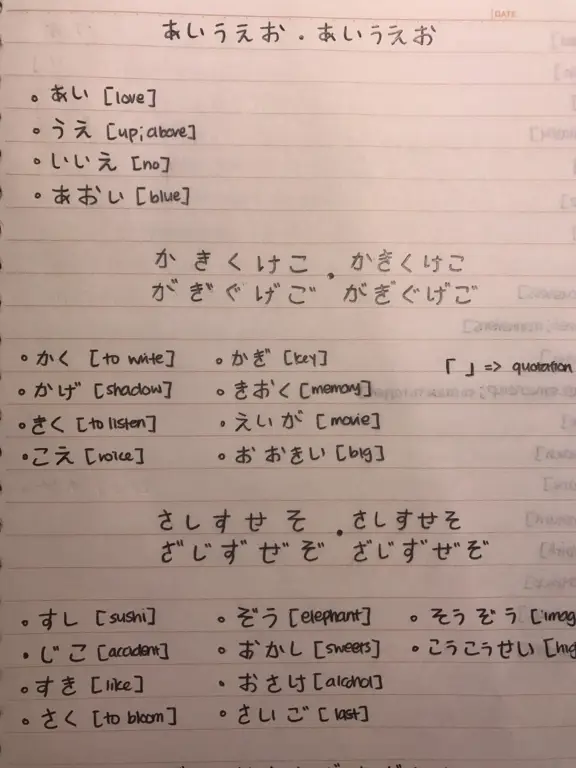 DATE
あいうえお . あいうえお
• あい [love]
• うえ [up; above]
• いいえ [no]
• あおい [blue]
かきくけこ . かきくけこ
がぎぐげご がぎぐげご
• かく [to write] • かぎ [key] 「 」=> quotation
• かげ [shadow] • きおく [memory]
• きく [to listen] • えいが [movie]
• こえ [voice] • おおきい [big]
さしすせそ . さしすせそ
ざじずぜぞ ざじずぜぞ
• すし [sushi] • ぞう [elephant] • そうぞう [imag
• じこ [accident] • おかし [sweets] • こうこうせい [hig
• すき [like] • おさけ [alcohol]
• さく [to bloom] • さいご [last]